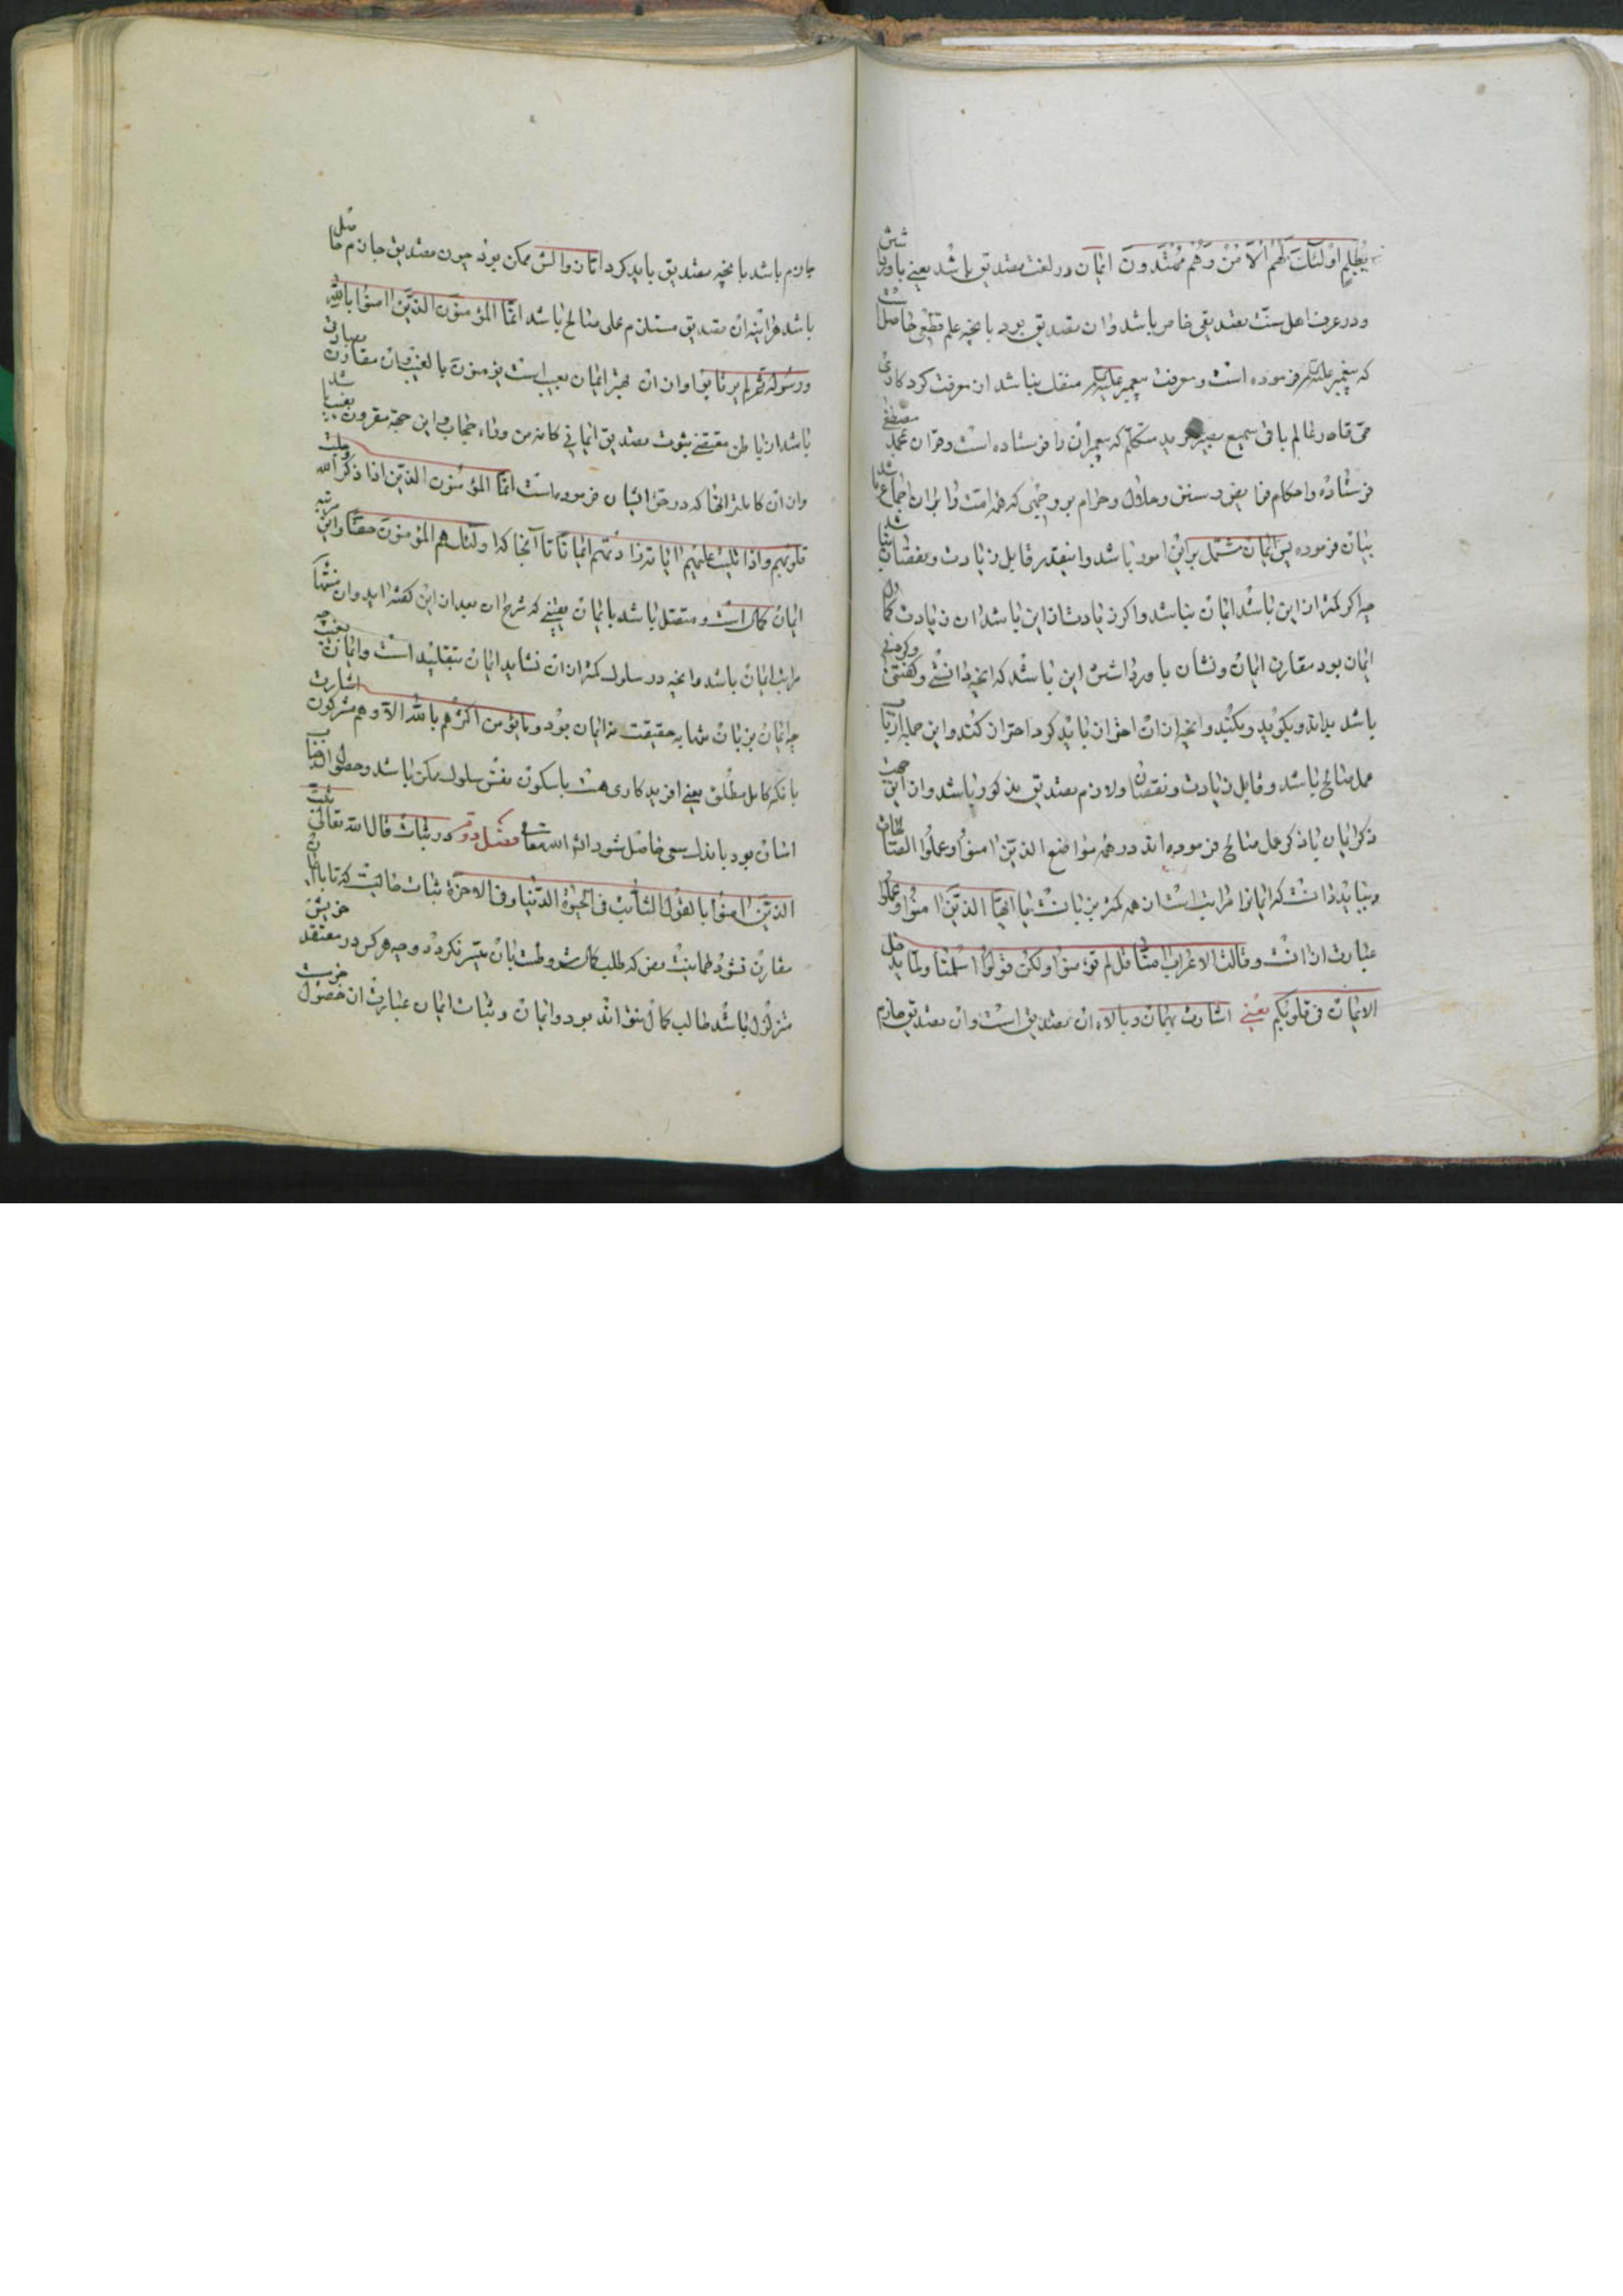 بظلم اولئك لهم الامن وهم مهتدون ایمان در لغت تصدیق باشد یعنی باور داشتن
و در عرف اهل سنت تصدیقی خاص باشد و ان تصدیق بود بانچه علم قطعی حاصلست
که پیغمبر علیه فرموده است و معرفت پیغمبر علیه منفك نباشد از معرفت کردکاری
قادر عالم باقی سمیع بصیر مرید متکلم که پیغمبران را فرستاده است و قران بمحمد مصطفی
فرستاده و احکام فرایض و سنن و حلال و حرام بر وجهی که همه امت را بران اجماع باشد
بیان فرموده پس ایمان مشتمل براین امور باشد و اینقدر قابل زیادت و نقصان نباشد
چه اکر کمتر ازاین باشد ایمان نباشد و اکر زیادت ازاین باشد ان زیادت کمال
ایمان بود مقارن ایمان و نشان باور داشتن این باشد که انچه دانستنی و کفتنی و کردنی
باشد بداند و بکوید و بکند و انچه ازان احتراز باید کرد احتراز کند و این جمله از باب
عمل صالح باشد و قابل زیادت و نقصان و لازم تصدیق مذکور باشد و ازاین جهت
ذکر ایمان با ذکر عمل صالح فرموده اند در همه مواضع الذین امنوا وعملوا الصالحات
و بباید دانست که ایمانرا مراتب است از همه کمتر بزبانست یا ایها الذین امنوا وعملوا
عبارت ازانست و قالت الاعراب امنا قل لم تؤمنوا ولکن قولوا اسلمنا ولما یدخل
الایمان فی قلوبکم یعنی اشارت بهمان و بالاء ان تصدیق است وان تصدیق جازم
جازم باشد بانچه تصدیق باید کرد اما زوالش ممکن بود چون تصدیق جازم حاصل
باشد هراینه ان تصدیق مستلزم عمل صالح باشد انما المؤمنون الذین امنوا بالله
ورسوله ثم لم یرتابوا وازان بهتر ایمان بغیب است یؤمنون بالغیب وان مقارن بصارتی
باشد از باطن مقتضی ثبوت تصدیق ایمانی کانه من وراء حجاب و این جهة مقرون بغیب باشد
وازان کاملتر انها که در حق ایشان فرموده است انما المؤمنون الذین اذا ذکر الله وجلت
قلوبهم واذا تلیت علیهم ایاته زادتهم ایمانا تا آنجا که اولئك هم المؤمنون حقا و این مرتبه
ایمان کمال است و متصل باشد بایمان یقینی که شرح ان بعد ازاین کفته اید وان منتهای
مراتب ایمان باشد و انچه در سلوك کمتر ازان نشاید ایمان بتقلید است و ایمان بغیب چه
چه ایمان بزبان تنها به حقیقت نه ایمان بود وما یؤمن اکثرهم بالله الا وهم مشرکون اشارت
بانکه کامل مطلق یعنی افریدکاری هست باسکون نفس سلوك ممکن باشد و حصول
اسان بود باندك سعی حاصل شود انشاء الله تعالی فصل دوم در ثبات قال الله تعالی یثبت
الذین امنوا بالقول الثابت فی الحیوة الدنیا وفی الاخرة ثبات حالیست که تا با ایمان
مقارن نشود طمانینت نفس که طلب کمال مشروطست بان میسر نکردد و چه هرکس در معتقد خویش
متزلزل باشد طالب کمال نتواند بود و ایمان و ثبات ایمان عبارت از حصول جزمست